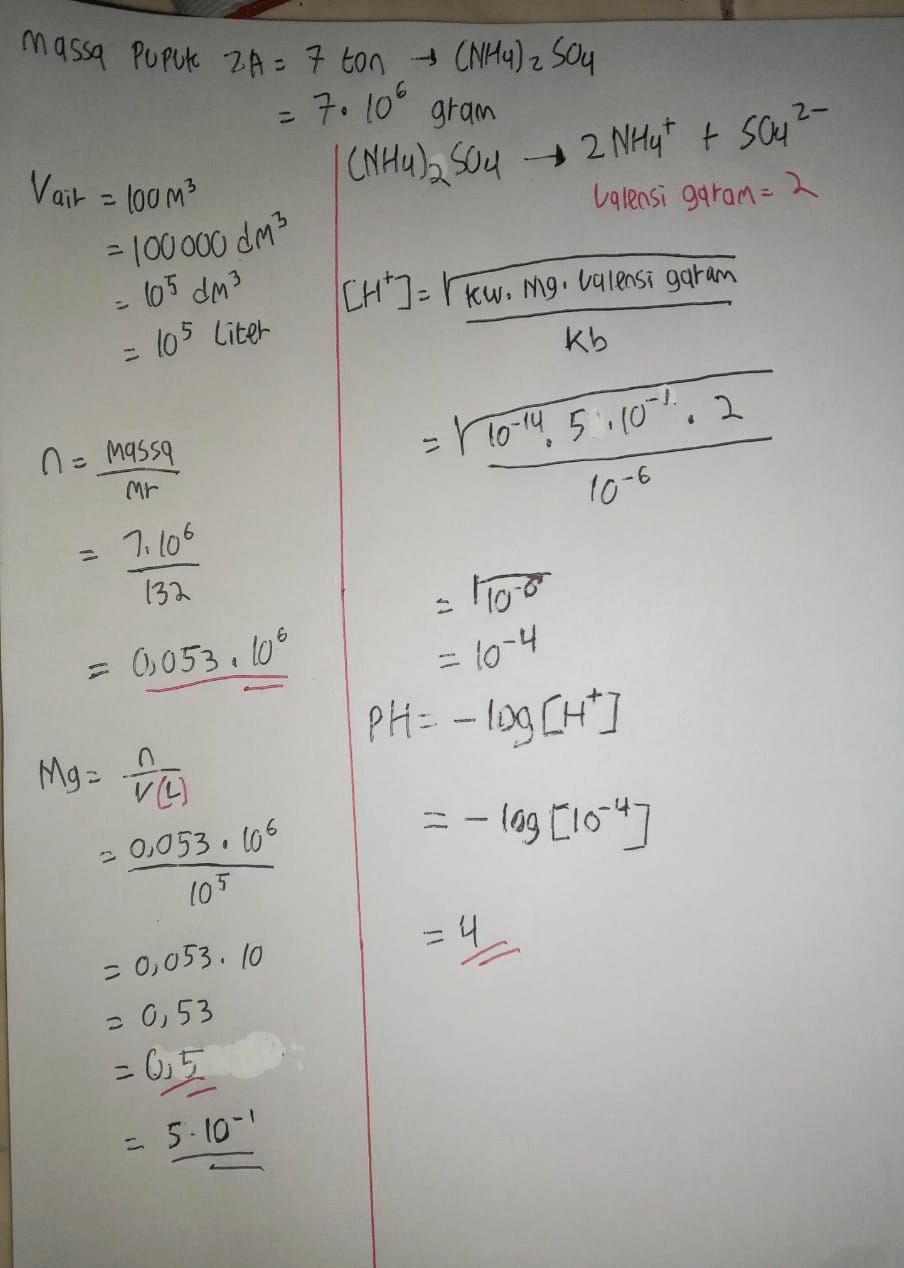 Massa Pupuk ZA = 7 ton → (NH4)2 SO4
= 7. 10^6 gram
Vair = 100 m^3
= 100000 dm^3
= 10^5 dm^3
= 10^5 Liter
n = massa
mr
= 7. 10^6
132
= 0,053 . 10^6
Mg = n
V(L)
= 0,053 . 10^6
10^5
= 0,053. 10
= 0,53
= 0,5
= 5.10^-1
(NH4)2 SO4 → 2 NH4^+ + SO4^2-
Valensi garam = 2
[H^+] = √kw. Mg. Valensi garam
Kb
= √10^-14. 5 .10^-1. 2
10^-6
= √10^-8
= 10^-4
PH = - log [H^+]
= - log [10^-4]
= 4